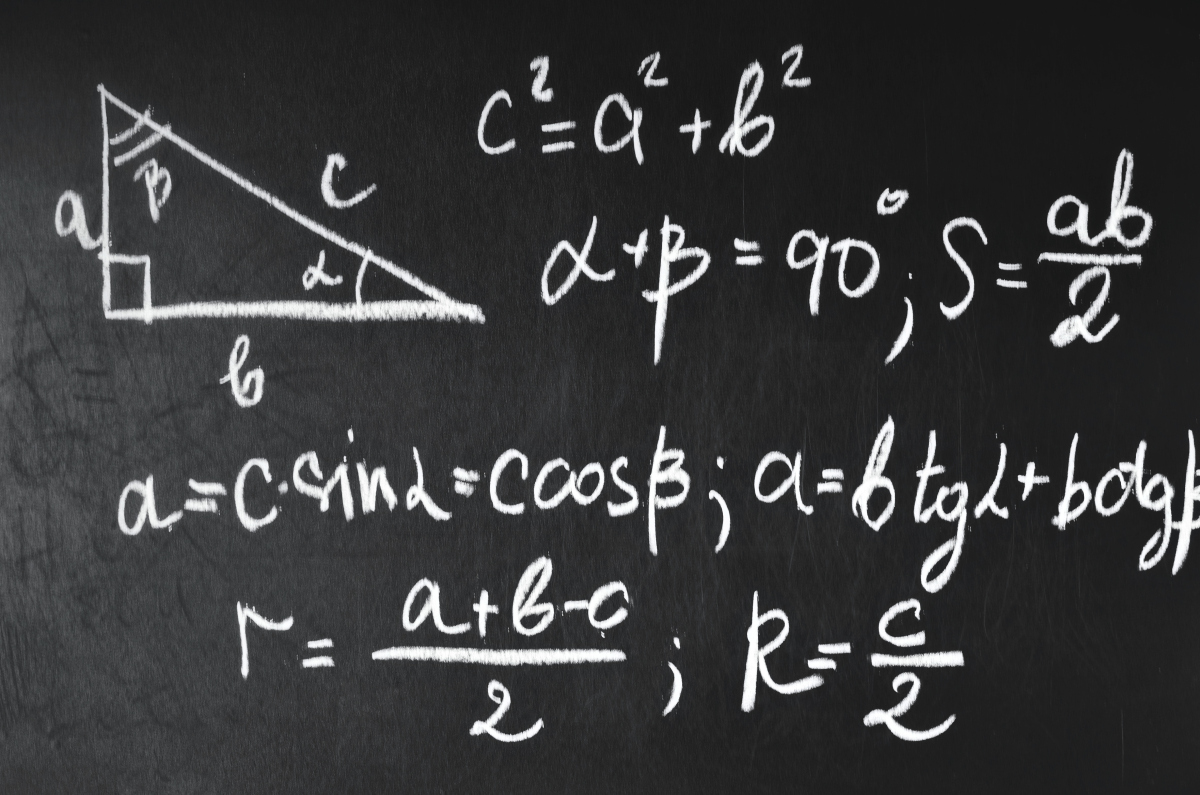 c² = a² + b²
a β c α b
α + β = 90°; S = ab/2
a = c · sin α = c cos β; a = b tg α + b ctg β
r = (a + b - c)/2; R = c/2